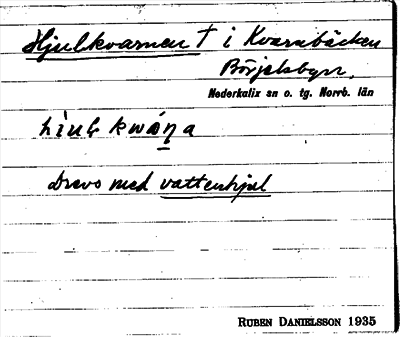 Hjulkvarnen † i Kvarnbäcken
Börjelsbyn,
Nederkalix sn o. tg. Norrb. län
Drevs med vattenhjul
RUBEN DANIELSSON 1935